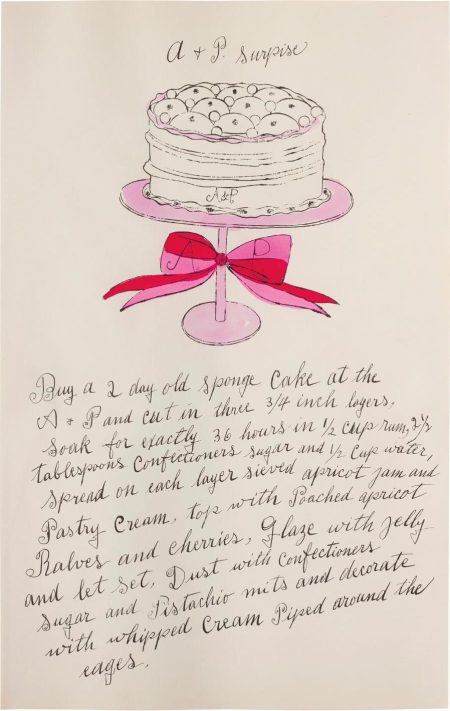 A & P. Surpise
A&P
A P
Buy a 2 day old sponge cake at the
A & P and cut in three 3/4 inch layers,
soak for exactly 36 hours in 1/2 cup rum, 2 1/2
tablespoons Confectioners sugar and 1/2 cup water,
spread on each layer sieved apricot jam and
Pastry Cream, top with Poached apricot
Ralves and cherries, Glaze with jelly
and let set, Dust with confectioners
sugar and Pistachio nuts and decorate
with whipped Cream Piped around the
eages.